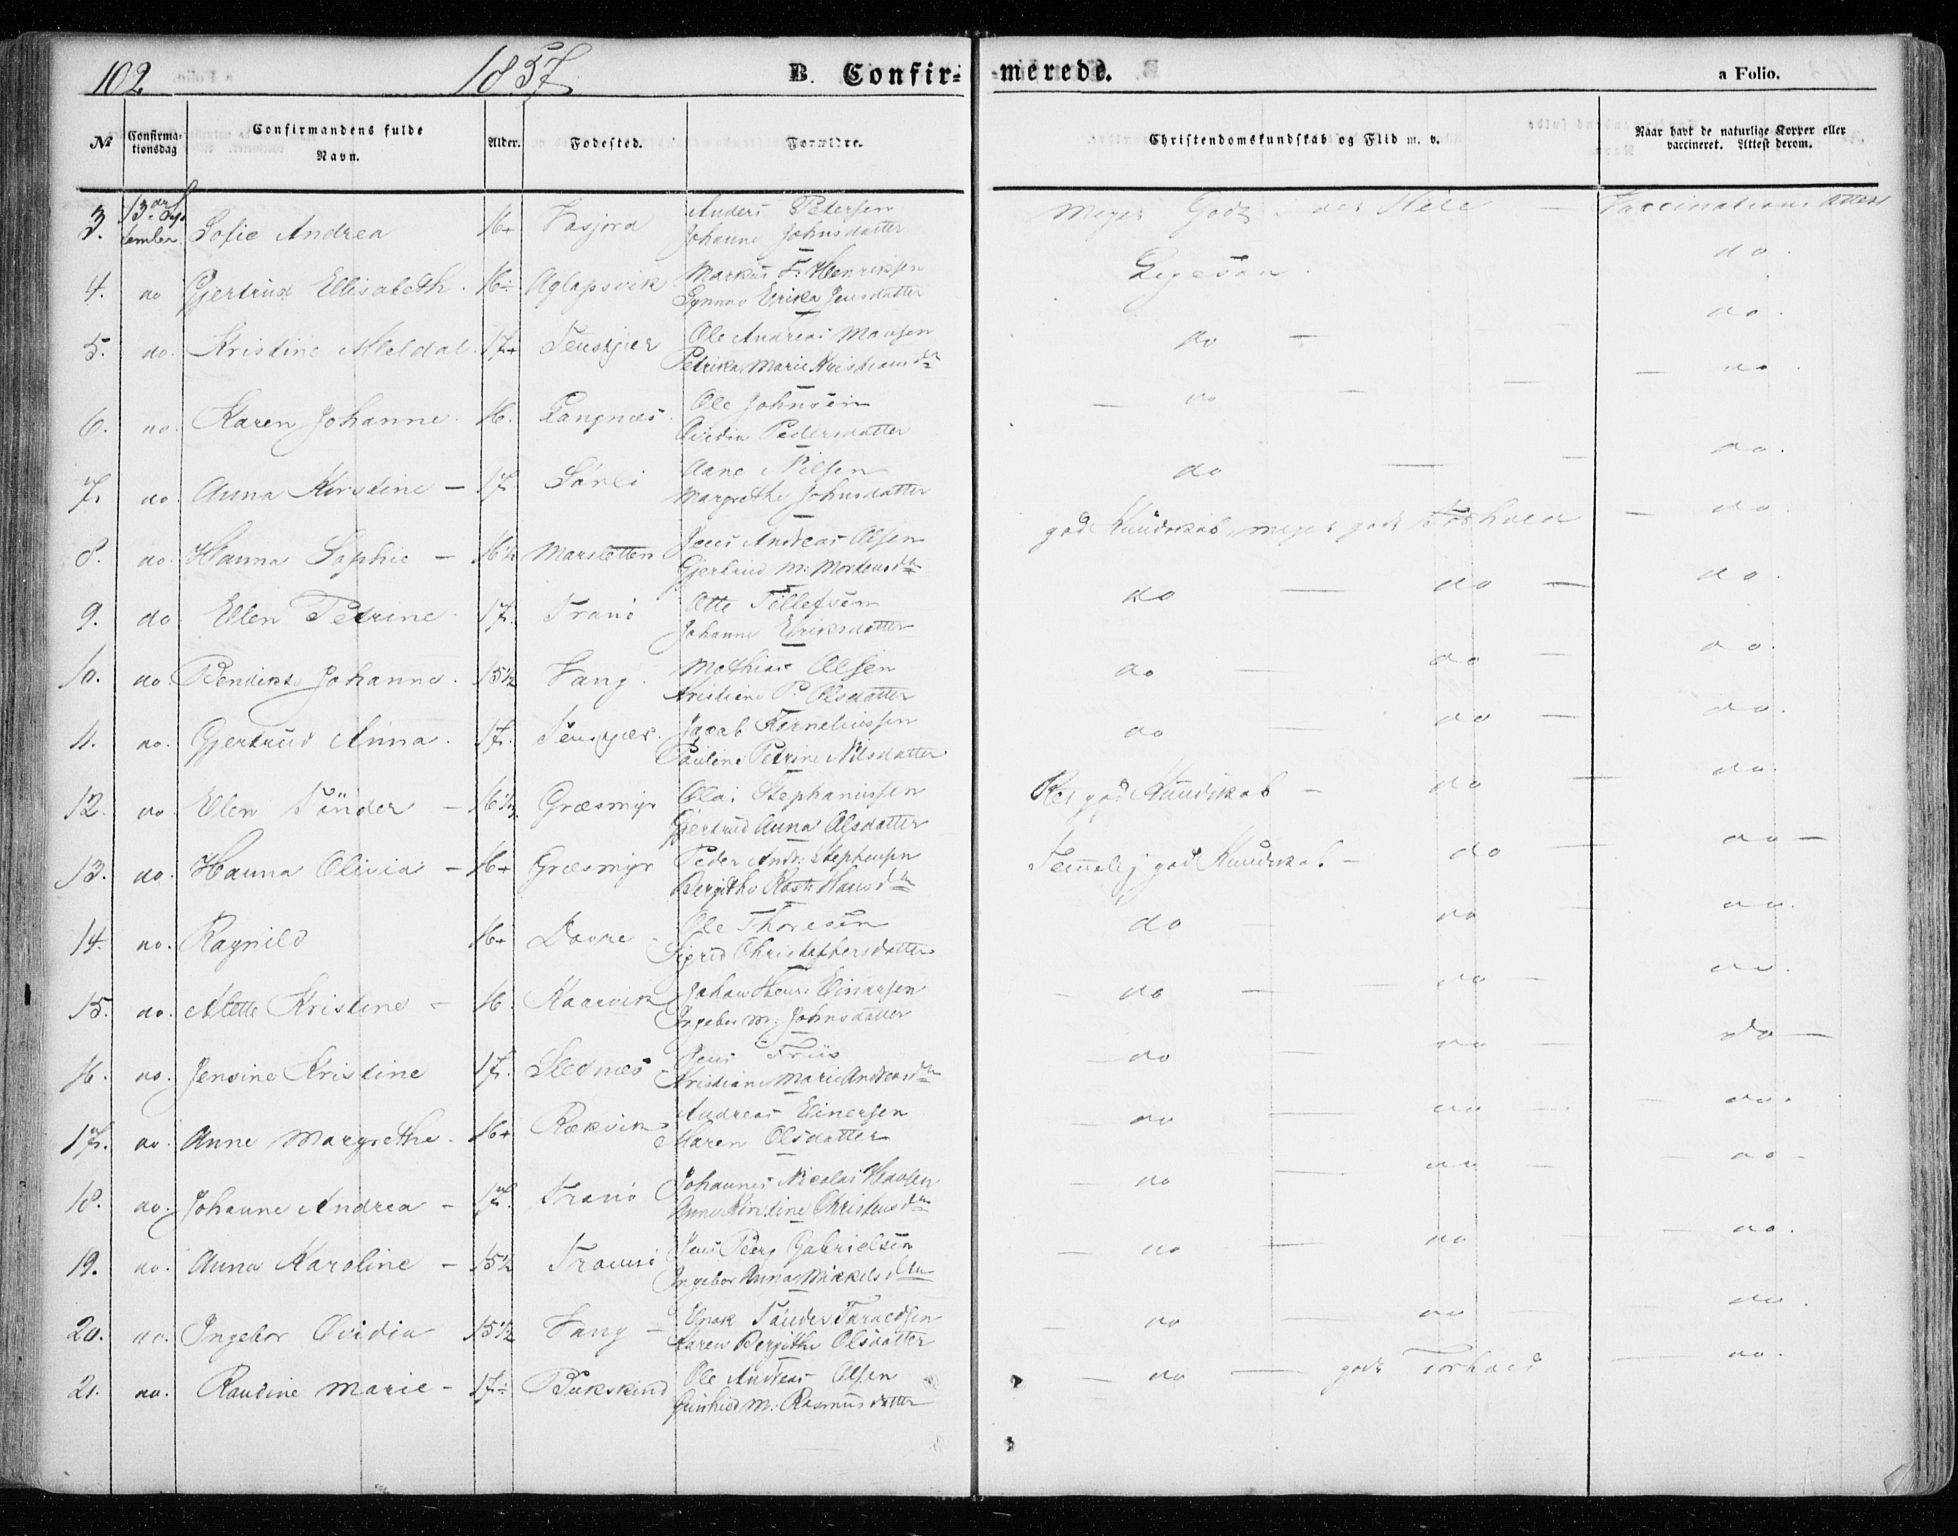 102
1857.
B. Confir-
merede.
a Folio.
No
Confirma-
tionsdag
Confirmandens fulde
Navn.
Alder.
Fødested.
Forældre.
Christendomskundskab og Flid m. v.
Naar havt de naturlige Kopper eller
vaccineret. Attest derom.
3. 13de Sep
tember. Sofie Andrea 16+ Anders Petersen
Johanne Johnsdatter
Meget Godt
4. do Gjertrud Ellisabeth. 16÷ Aglapsvik Markus F. Henriksen
Synnav Erika Jensdatter
Ligesaa. do.
5. do. Kristine Meldal. 17+ Tenskjer Ole Andreas Mansen
Petrika Marie Kristians dtr
do — do.
6. do. Karen Johanne. 16. Langnæs. Ole Johnsen
Ovidia Pedersdatter
— do — — do.
7. do. Anna Kirstine — 17. Sørli Aane Nilsen
Margrethe Johnsdatter
do — — do.
8. do. Hanna Sophie — 16½ Marsletten Jens Andreas Olsen
Gjertrud M. Mortensdtr
god Kundskab, meget godt Forhold — do.
9. do Elen Petrine. 17. Tranø Otte Tollefsen
Johanne Eriksdatter
do — do — do.
10. do. Bendikte Johanna. 15½ Vang. Mathias Olsen
Kristiane P. Olsdatter
do — do — do.
11. do. Gjertrud Anna. 17. Tenskjær. Jacob Kornelinssen
Pauline Petrine Nilsdatter
do — do — do.
12. do Elen Tønder — 16½ Græsmyr Olai Stephanussen
Gjertrud Anna Olsdatter
Ret god Kundskab — do — do.
13. do. Hanna Olivia — 16+ Græsmyr Peder Andr. Stephensen
Bergithe Hansdtr
Temmelig god Kundskab — do — do —
14. do. Ragnild 16+ Dovre Ole Thoresen
Sigrid Christophersdatter
do do do.
15. do. Alette Kristine — 16. Kaarvik Johan Einarsen
Ingebor M. Johnsdatter
— do — — do — do.
16. do. Jensine Kristine 17. Slednæs Jens Friis
Kristiane Marie Andersdtr
— do — do — do —
17. do. Anne Margrethe. 16+ Rækvik Andreas Einersen
Maren Olsdatter
— do — do — do.
18. do. Johanne Andrea — 17. Tranø Johannes Nicolai Hansen
Anne Kirstine Christensdtr
— do — do — — do —
19. do. Anna Karoline — 15½ Jens Peer Gabrielsen
Ingebor Anna Mikkelsdtr
— do — do — do.
20. do. Ingebor Ovidia 15½ Vang — Enok Tønder
Karen Bergithe Olsdatter
— do — do — do.
21. do. Raudine Marie — 17÷ Bukskind Ole Andreas Olsen
Gunhild M. Rasmusdatter
— do — godt Forhold — do.